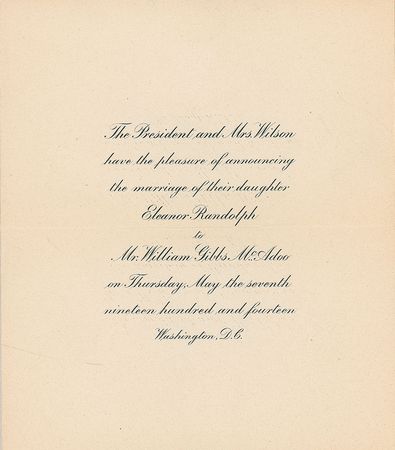 The President and Mrs. Wilson
have the pleasure of announcing
the marriage of their daughter
Eleanor Randolph
to
Mr. William Gibbs McAdoo
on Thursday, May the seventh
nineteen hundred and fourteen
Washington, D.C.